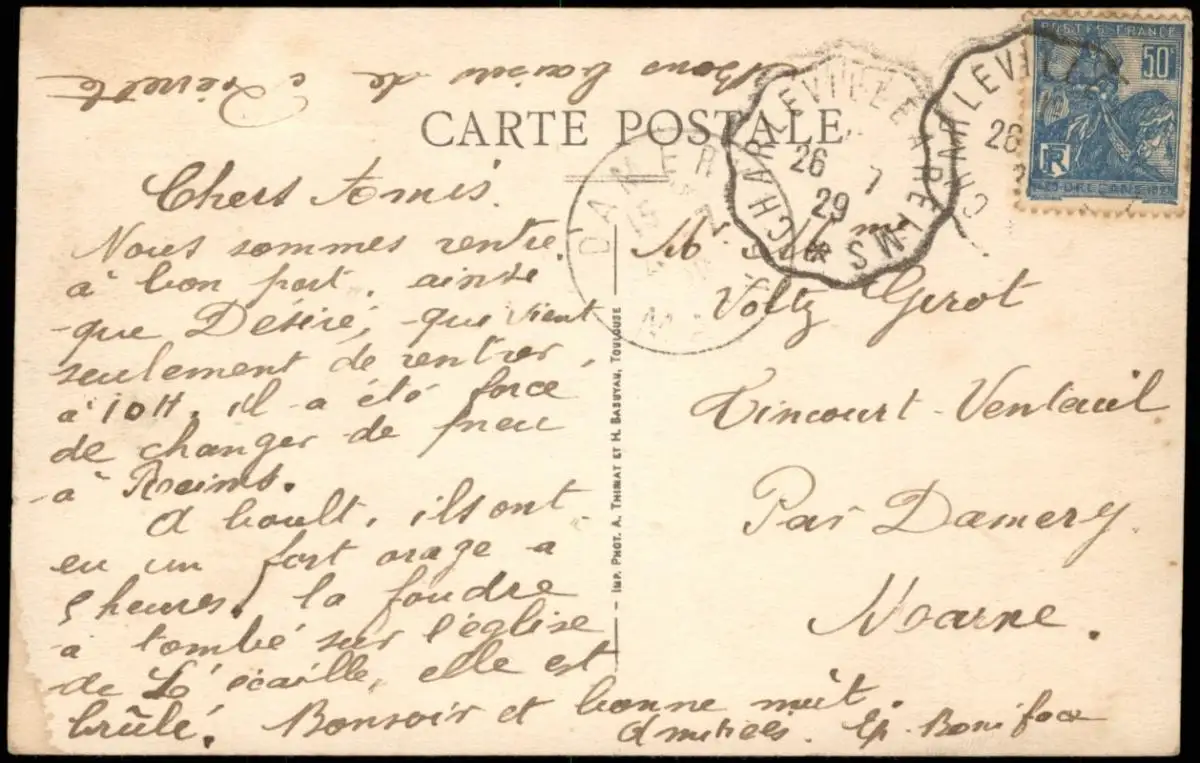 Bons baisers de
CARTE POSTALE
POSTES FRANCE
50c
RF
ORLEANS
CHARLEVILLE A REIMS
26 7
29
CHARLEVILLE
26
DAMERY
Chers Amis.
Nous sommes rentré
à bon port, ainsi
que Désiré, qui vient
seulement de rentrer,
à 10H, il a été force
de changer de pneu
à Reims.
A boult, ils ont
eu un fort orage a
5 heures, la foudre
a tombé sur l'église
de L'écaille, elle est
brûlé. Bonsoir et bonne nuit.
Amitiées. Ep. Boniface
IMP. PHOT. A. THIRIAT ET H. BASUYAU, TOULOUSE
Voltz Gerot
Tincourt-Venteuil
Par Damery.
Marne.